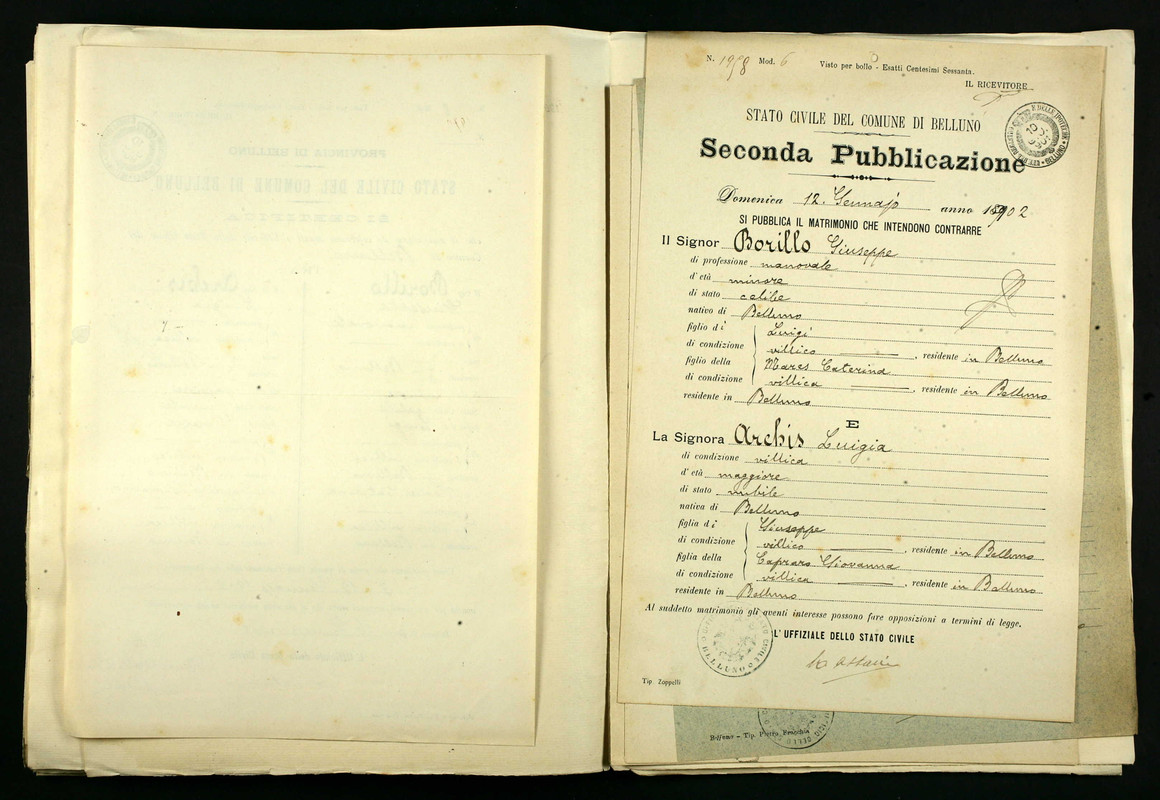 N. 1958 Mod. 6 Visto per bollo - Esatti Centesimi Sessanta.
IL RICEVITORE
STATO CIVILE DEL COMUNE DI BELLUNO
Seconda Pubblicazione
Domenica 12. Gennajo anno 1902
SI PUBBLICA IL MATRIMONIO CHE INTENDONO CONTRARRE
Il Signor Borillo Giuseppe
di professione manovale
d'età minore
di stato celibe
nativo di Belluno
figlio di Luigi
di condizione villico , residente in Belluno
figlio della Mares Caterina
di condizione villica , residente in Belluno
residente in Belluno
E
La Signora Archis Luigia
di condizione villica
d'età maggiore
di stato nubile
nativa di Belluno
figlia di Giuseppe
di condizione villico , residente in Belluno
figlia della Capraro Giovanna
di condizione villica , residente in Belluno
residente in Belluno
Al suddetto matrimonio gli aventi interesse possono fare opposizioni a termini di legge.
L'UFFIZIALE DELLO STATO CIVILE
BELLUNO
Tip. Zoppelli
Belluno - Tip. Pietro Fracchia